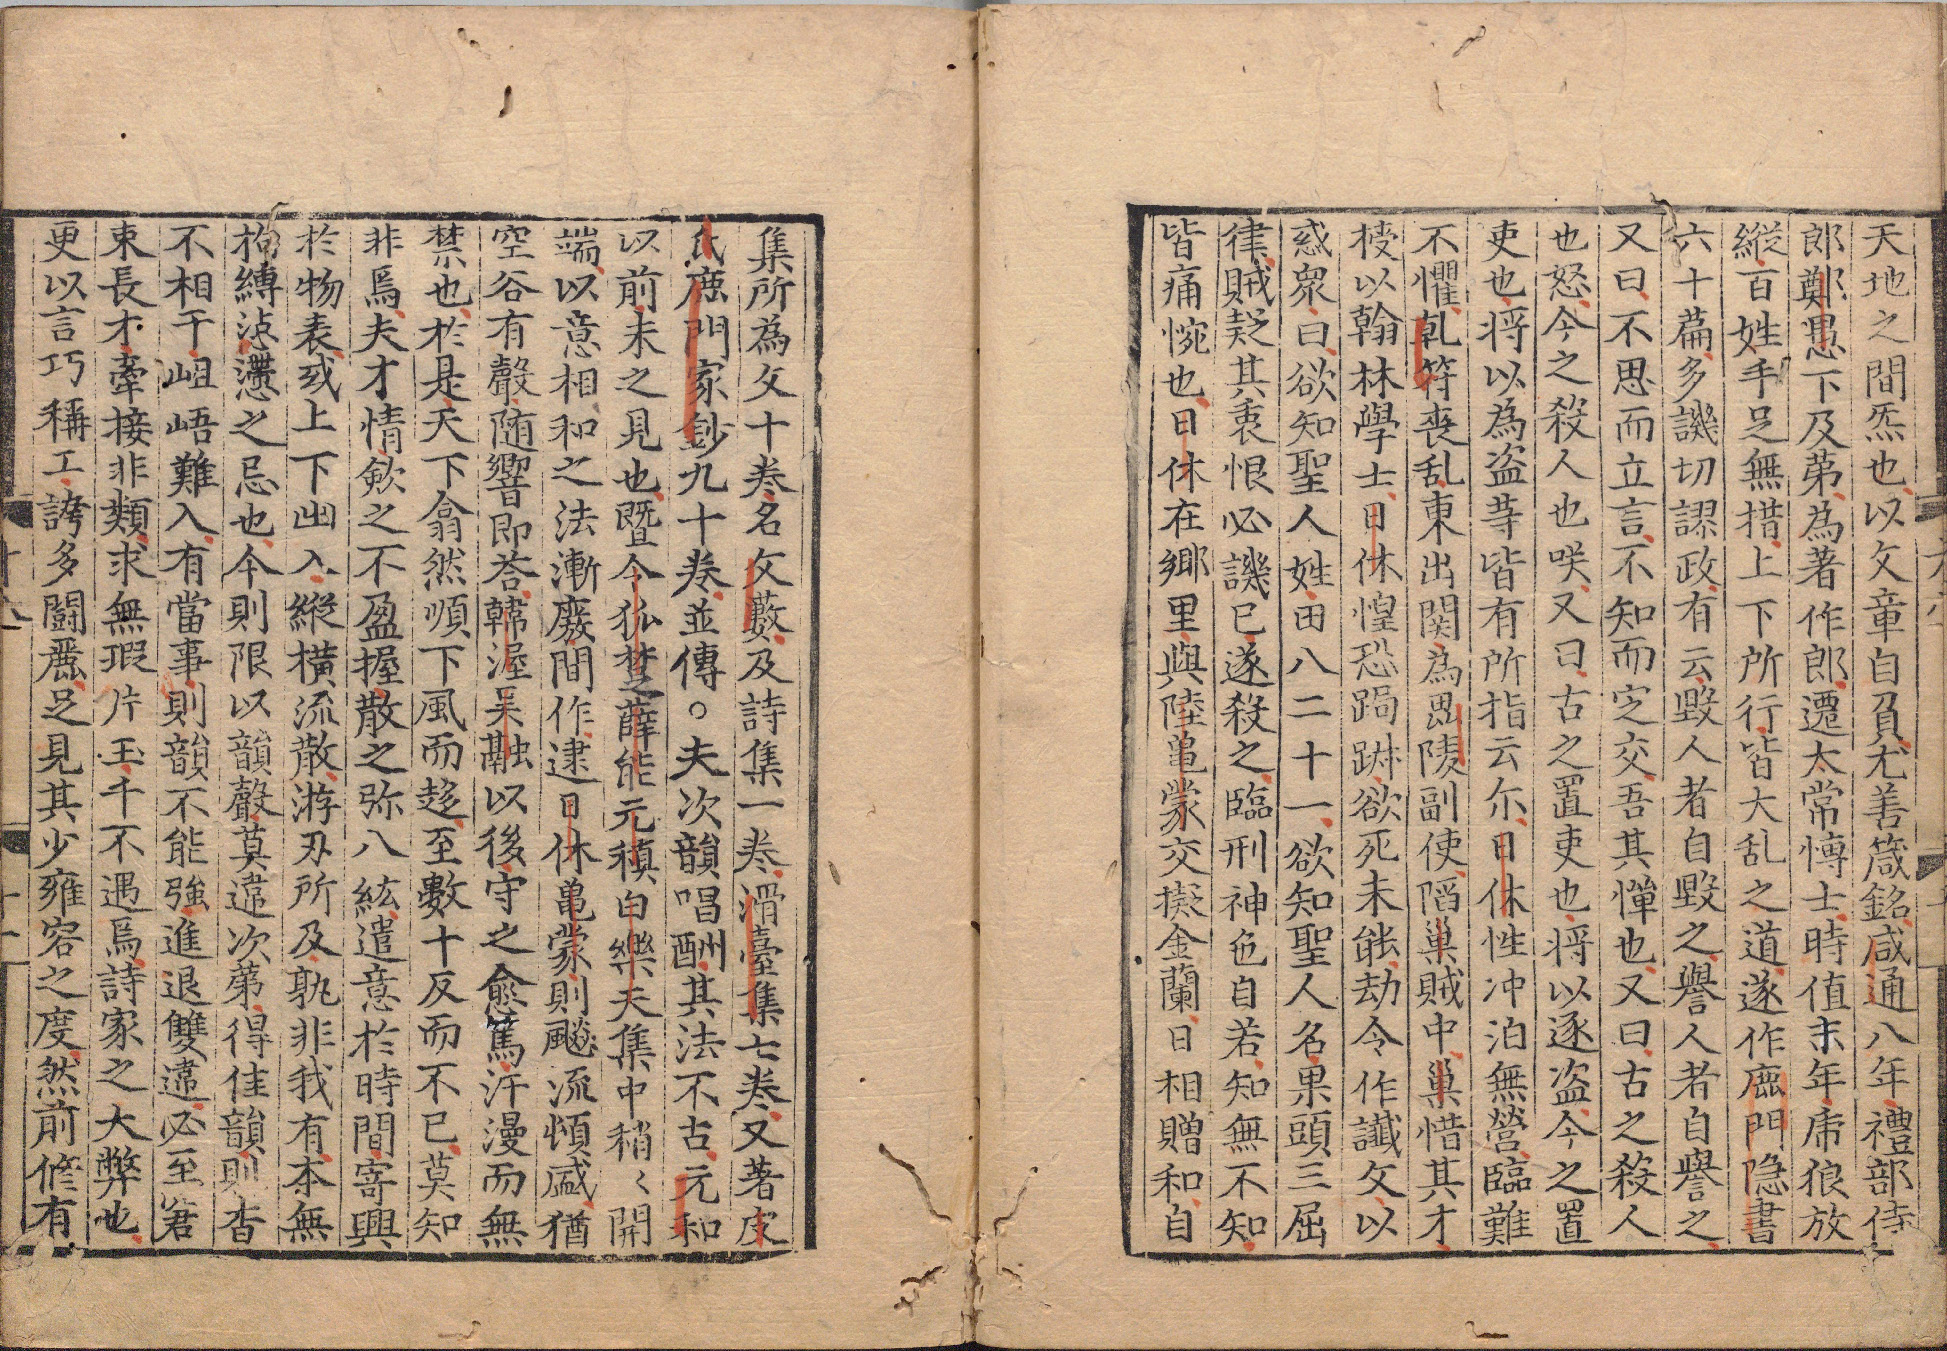 天地之間炁也以文章自負尤善箴銘咸通八年禮部侍
郎鄭愚下及第為著作郎遷太常愽士時值末年虎狼放
縱百姓手足無措上下所行皆大乱之道遂作鹿門隐書
六十篇多譏切謬政有云毀人者自毀之譽人者自譽之
又曰不思而立言不知而定交吾其憚也又曰古之殺人
也怒今之殺人也咲又曰古之置吏也將以逐盗今之置
吏也將以為盗䓁皆有所指云尓日休性冲泊無營臨難
不懼乹符喪乱東出関為毘陵副使陷巢賊中巢惜其才
授以翰林學士日休惶恐跼蹐欲死未能劫令作讖文以
惑衆曰欲知聖人姓田八二十一欲知聖人名果頭三屈
律賊疑其衷恨必譏已遂殺之臨刑神色自若知無不知
皆痛惋也日休在鄉里與陸亀蒙交擬金蘭日相贈和自
集所為文十卷名文藪及詩集一卷滑臺集七卷又著皮
氏鹿門家鈔九十卷並傳○夫次韻唱酬其法不古元和
以前未之見也暨令狐楚薛能元稹白樂天集中稍〻開
端以意相和之法漸廢間作逮日休亀蒙則飈流頓盛猶
空谷有聲随響即荅韓渥吴融以後守之愈篤汗漫而無
禁也於是天下翕然順下風而趍至數十反而不已莫知
非焉夫才情歛之不盈握散之弥八紘遣意於時間寄興
於物表或上下出入縱横流散游刃所及孰非我有本無
拘縛惉懘之忌也今則限以韻聲莫違次苐得佳韻則杳
不相干岨峿難入有當事則韻不能強進退雙違必至窘
束長才牽接非類求無瑕片玉千不遇焉詩家之大弊也
更以言巧稱工誇多鬭麗足見其少雍容之度然前修有